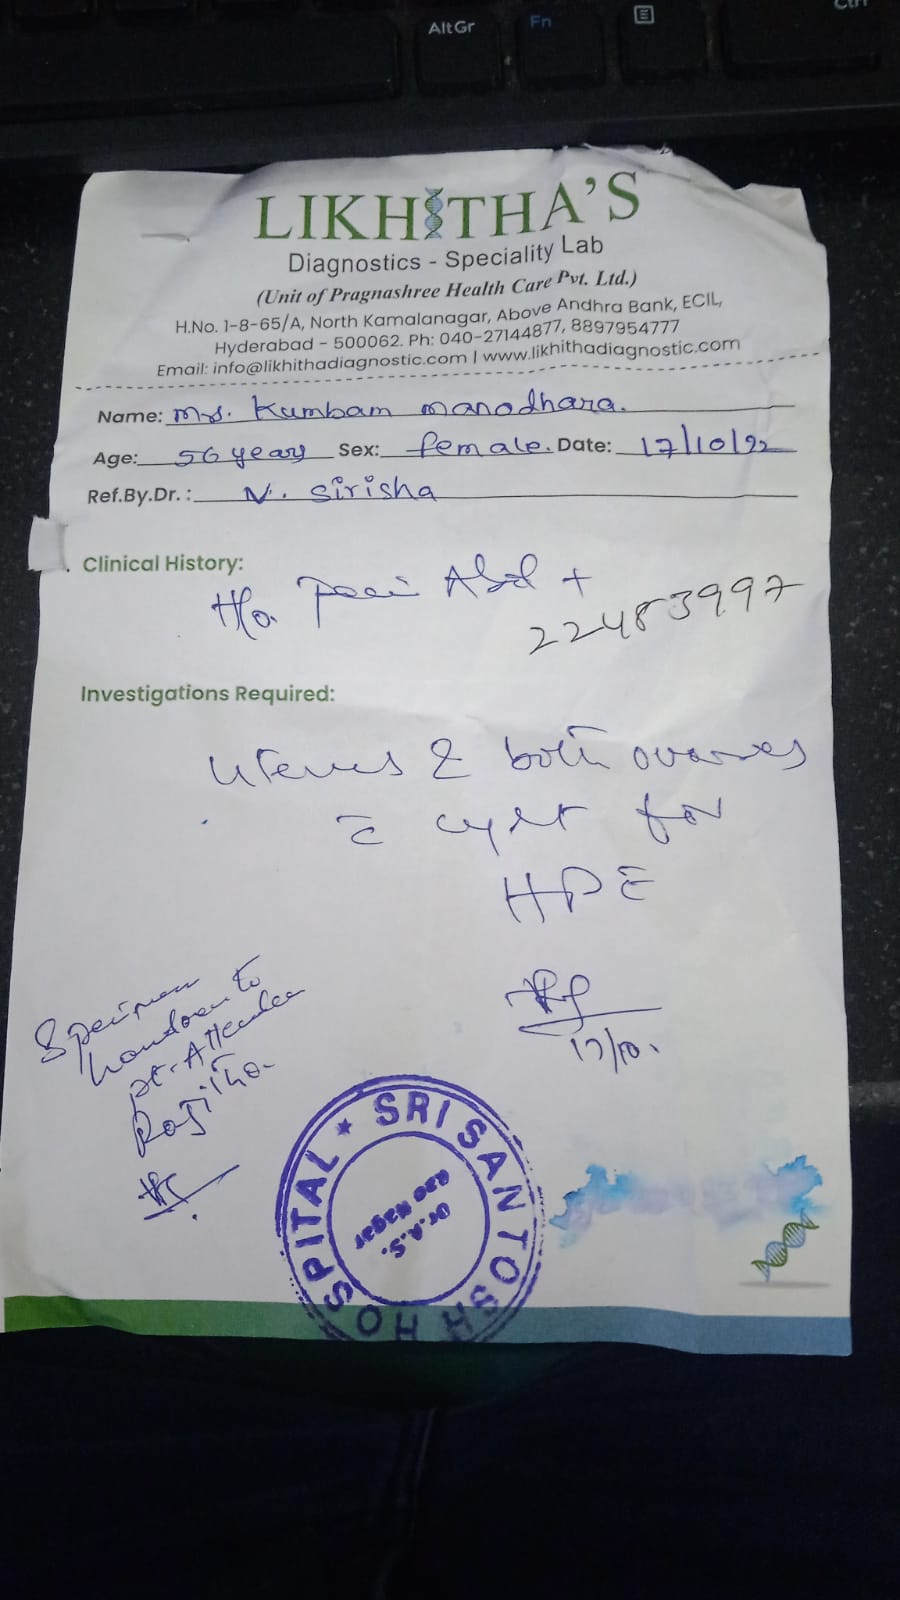 AltGr
Fn
Ctrl
LIKHITHA'S
Diagnostics - Speciality Lab
(Unit of Pragnashree Health Care Pvt. Ltd.)
H.No. 1-8-65/A, North Kamalanagar, Above Andhra Bank, ECIL,
Hyderabad - 500062. Ph: 040-27144877, 8897954777
Email: info@likhithadiagnostic.com | www.likhithadiagnostic.com
Name: Mrs. Kumbam manodhara.
Age: 56 years Sex: female. Date: 17/10/22
Ref.By.Dr. : N. Sirisha
Clinical History:
H/o. +
22483997
Investigations Required:
Uterus & both ovaries
c̄ cyst for
HPE
17/10.
Specimen
handover to
pt. Attender
Rajitha.
SRI SANTOSH HOSPITAL
Dr. A.S.
Rao Nagar